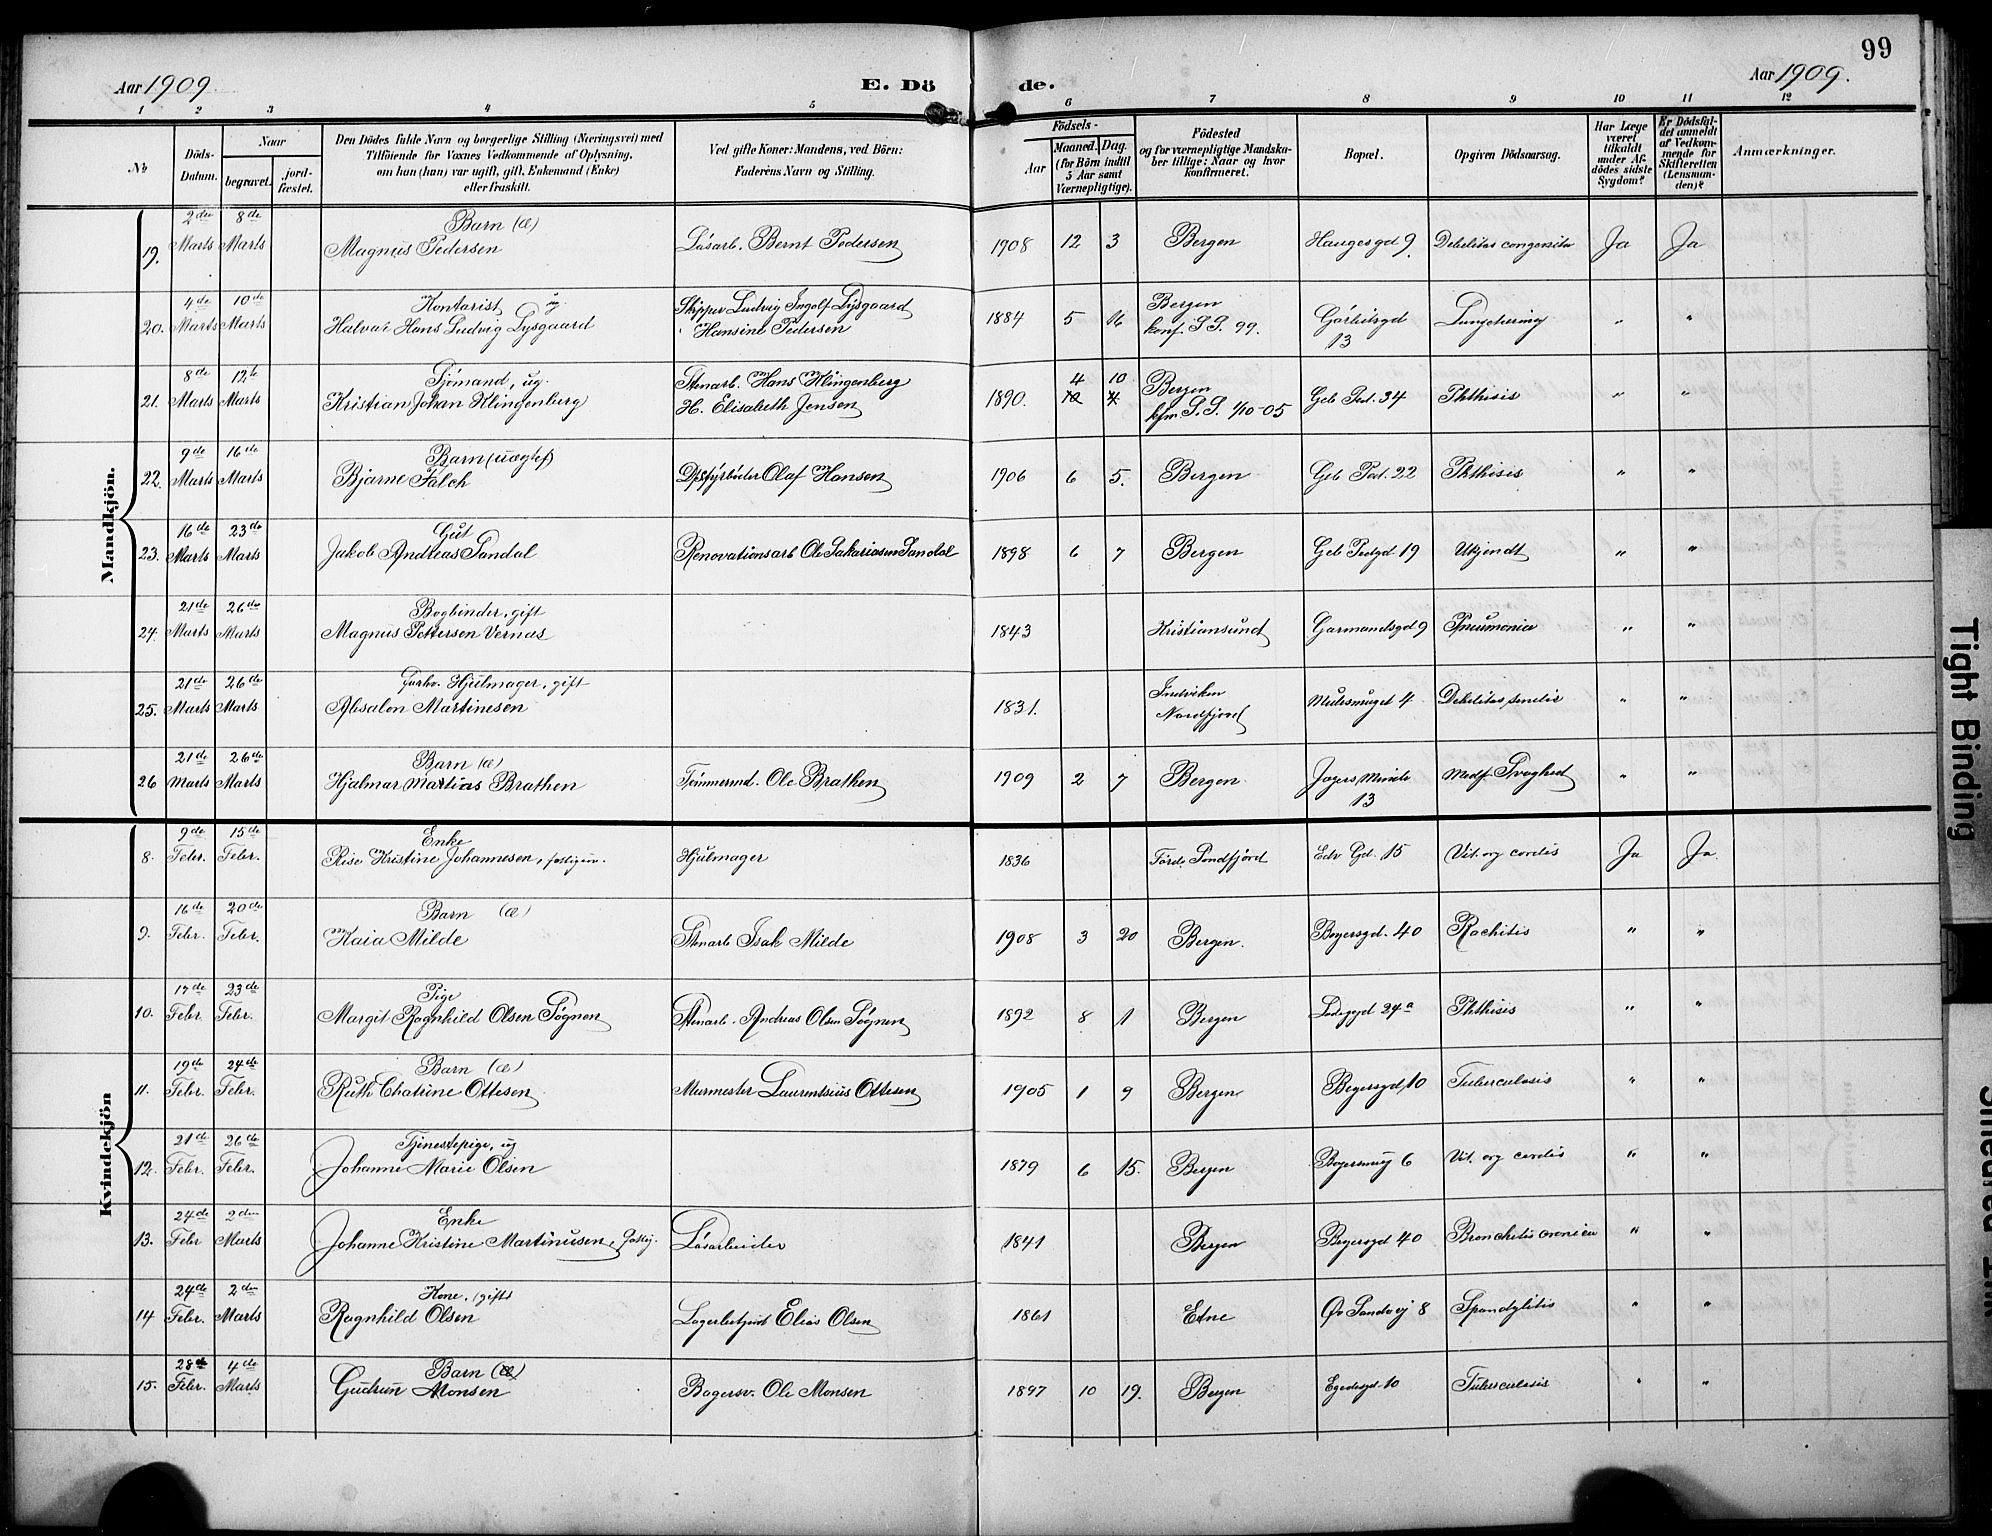 99
Aar 1909 E. Dö de. Aar 1909.
1 2 3 4 5 6 7 8 9 10 11 12
No Döds-Datum. Naar begravet. jord-fæstet. Den Dödes fulde Navn og borgerlige Stilling (Næringsvei) med Tilföiende for Voxnes Vedkommende af Oplysning, om han (hun) var ugift, gift, Enkemand (Enke) eller fraskilt. Ved gifte Koner: Mandens, ved Börn: Faderens Navn og Stilling. Födsels- Aar Maaned. Dag. (for Börn indtil 5 Aar samt Værnepligtige). Födested og for værnepligtige Mandska-ber tillige: Naar og hvor Konfirmeret. Bopæl. Opgiven Dödsaarsag. Har Læge været tilkaldt under Af-dödes sidste Sygdom? Er Dödsfal-det anmeldt af Vedkom-mende for Skifteretten (Lensman-den)? Anmærkninger.
Mandkjön.
2den 8de Barn (æ)
19. Marts Marts Magnus Pedersen Lösarb. Bernt Pedersen 1908 12 3 Bergen Haugesgd 9. Debilitas congenita Ja Ja
4de 10de Kontorist ug. Skipper Ludvig Ingolf Lysgaard Bergen
20. Marts Marts Hans Ludvig Lysgaard Hansine Pedersen 1884 5 16 konf. S.S. 99. 13 " "
8de 12te Sjömand, ug. Stenarb. Hans Klingenberg 4 10 Bergen
21. Marts Marts Kristian Johan Klingenberg H. Elisabeth Jensen 1890. 12 4 kfm. S.S. 1/10-05 Geb Ped. 34 Phthisis " "
9de 16de Barn (uægte)
22. Marts Marts Bjarne Falch Dpsfyrböder Olaf Hansen 1906 6 5. Bergen Geb Ped. 22 Phthisis " "
16de 23de Gut
23. Marts Marts Jakob Andreas Sandal Renovationsarb Ole Sakariasen Sandal 1898 6 7 Bergen Geb Pedgd 19 Ukjendt " "
21de 26de Bogbinder, gift
24. Marts Marts Magnus Pettersen Vernas 1843 Kristiansund Garmandsgd 9 Pneumonia " "
21de 26de Hjulmager, gift Indviken
25. Marts Marts Absalon Martinesen 1831. Nordfjord Mulesmuget 4 Debilitas senilis " "
21de 26de Barn (æ)
26 Marts Marts Hjalmar Mathias Brathen Tömmermd. Ole Brathen 1909 2 7 Bergen Jægers Minde 13 Medf. Svaghed " "
Kvindekjön
9de 15de Enke
8. Febr. Febr. Kristine Johannesen, Hjulmager 1836 Förde Söndfjörd Edv Gd. 15 Vit. org cordis Ja Ja.
16de 20de Barn (æ)
9. Febr. Febr. Kaia Milde Stenarb Isak Milde 1908 3 20 Bergen. Beyersgd. 40 Rachitis " "
17de 23de Pige
10. Febr. Febr. Margit Ragnhild Olsen Sögnen Stenarb. Andreas Olsen Sögnen 1892 8 1 Bergen 24 a Phthisis " "
19de 24de Barn (æ)
11. Febr. Febr. Ruth Chatrine Ottesen Murmester Laurentsius Ottesen 1905 1 9 Bergen Beyersgd. 10 Tuberculosis " "
21de 26de Tjenestepige, ug
12. Febr. Febr. Johanne Marie Olsen 1879 6 15. Bergen Beyersmug 6 Vit. org cordis " "
24de 2den Enke
13. Febr Marts Johanne Kristine Martinusen, Lösarbeider 1841 Bergen Beyersgd 40 Bronchitis cronica " "
24de 2den Kone, (gift)
14 Febr. Marts Ragnhild Olsen Lagerbetjent Elias Olsen 1861 Etne Øv Sandvej 8 Spondylitis " "
28de 4de Barn (æ)
15. Febr. Marts Gudrun Monsen Bagersv. Ole Monsen 1897 10 19. Bergen Egedesgd 10 Tuberculosis " "
Tight Binding